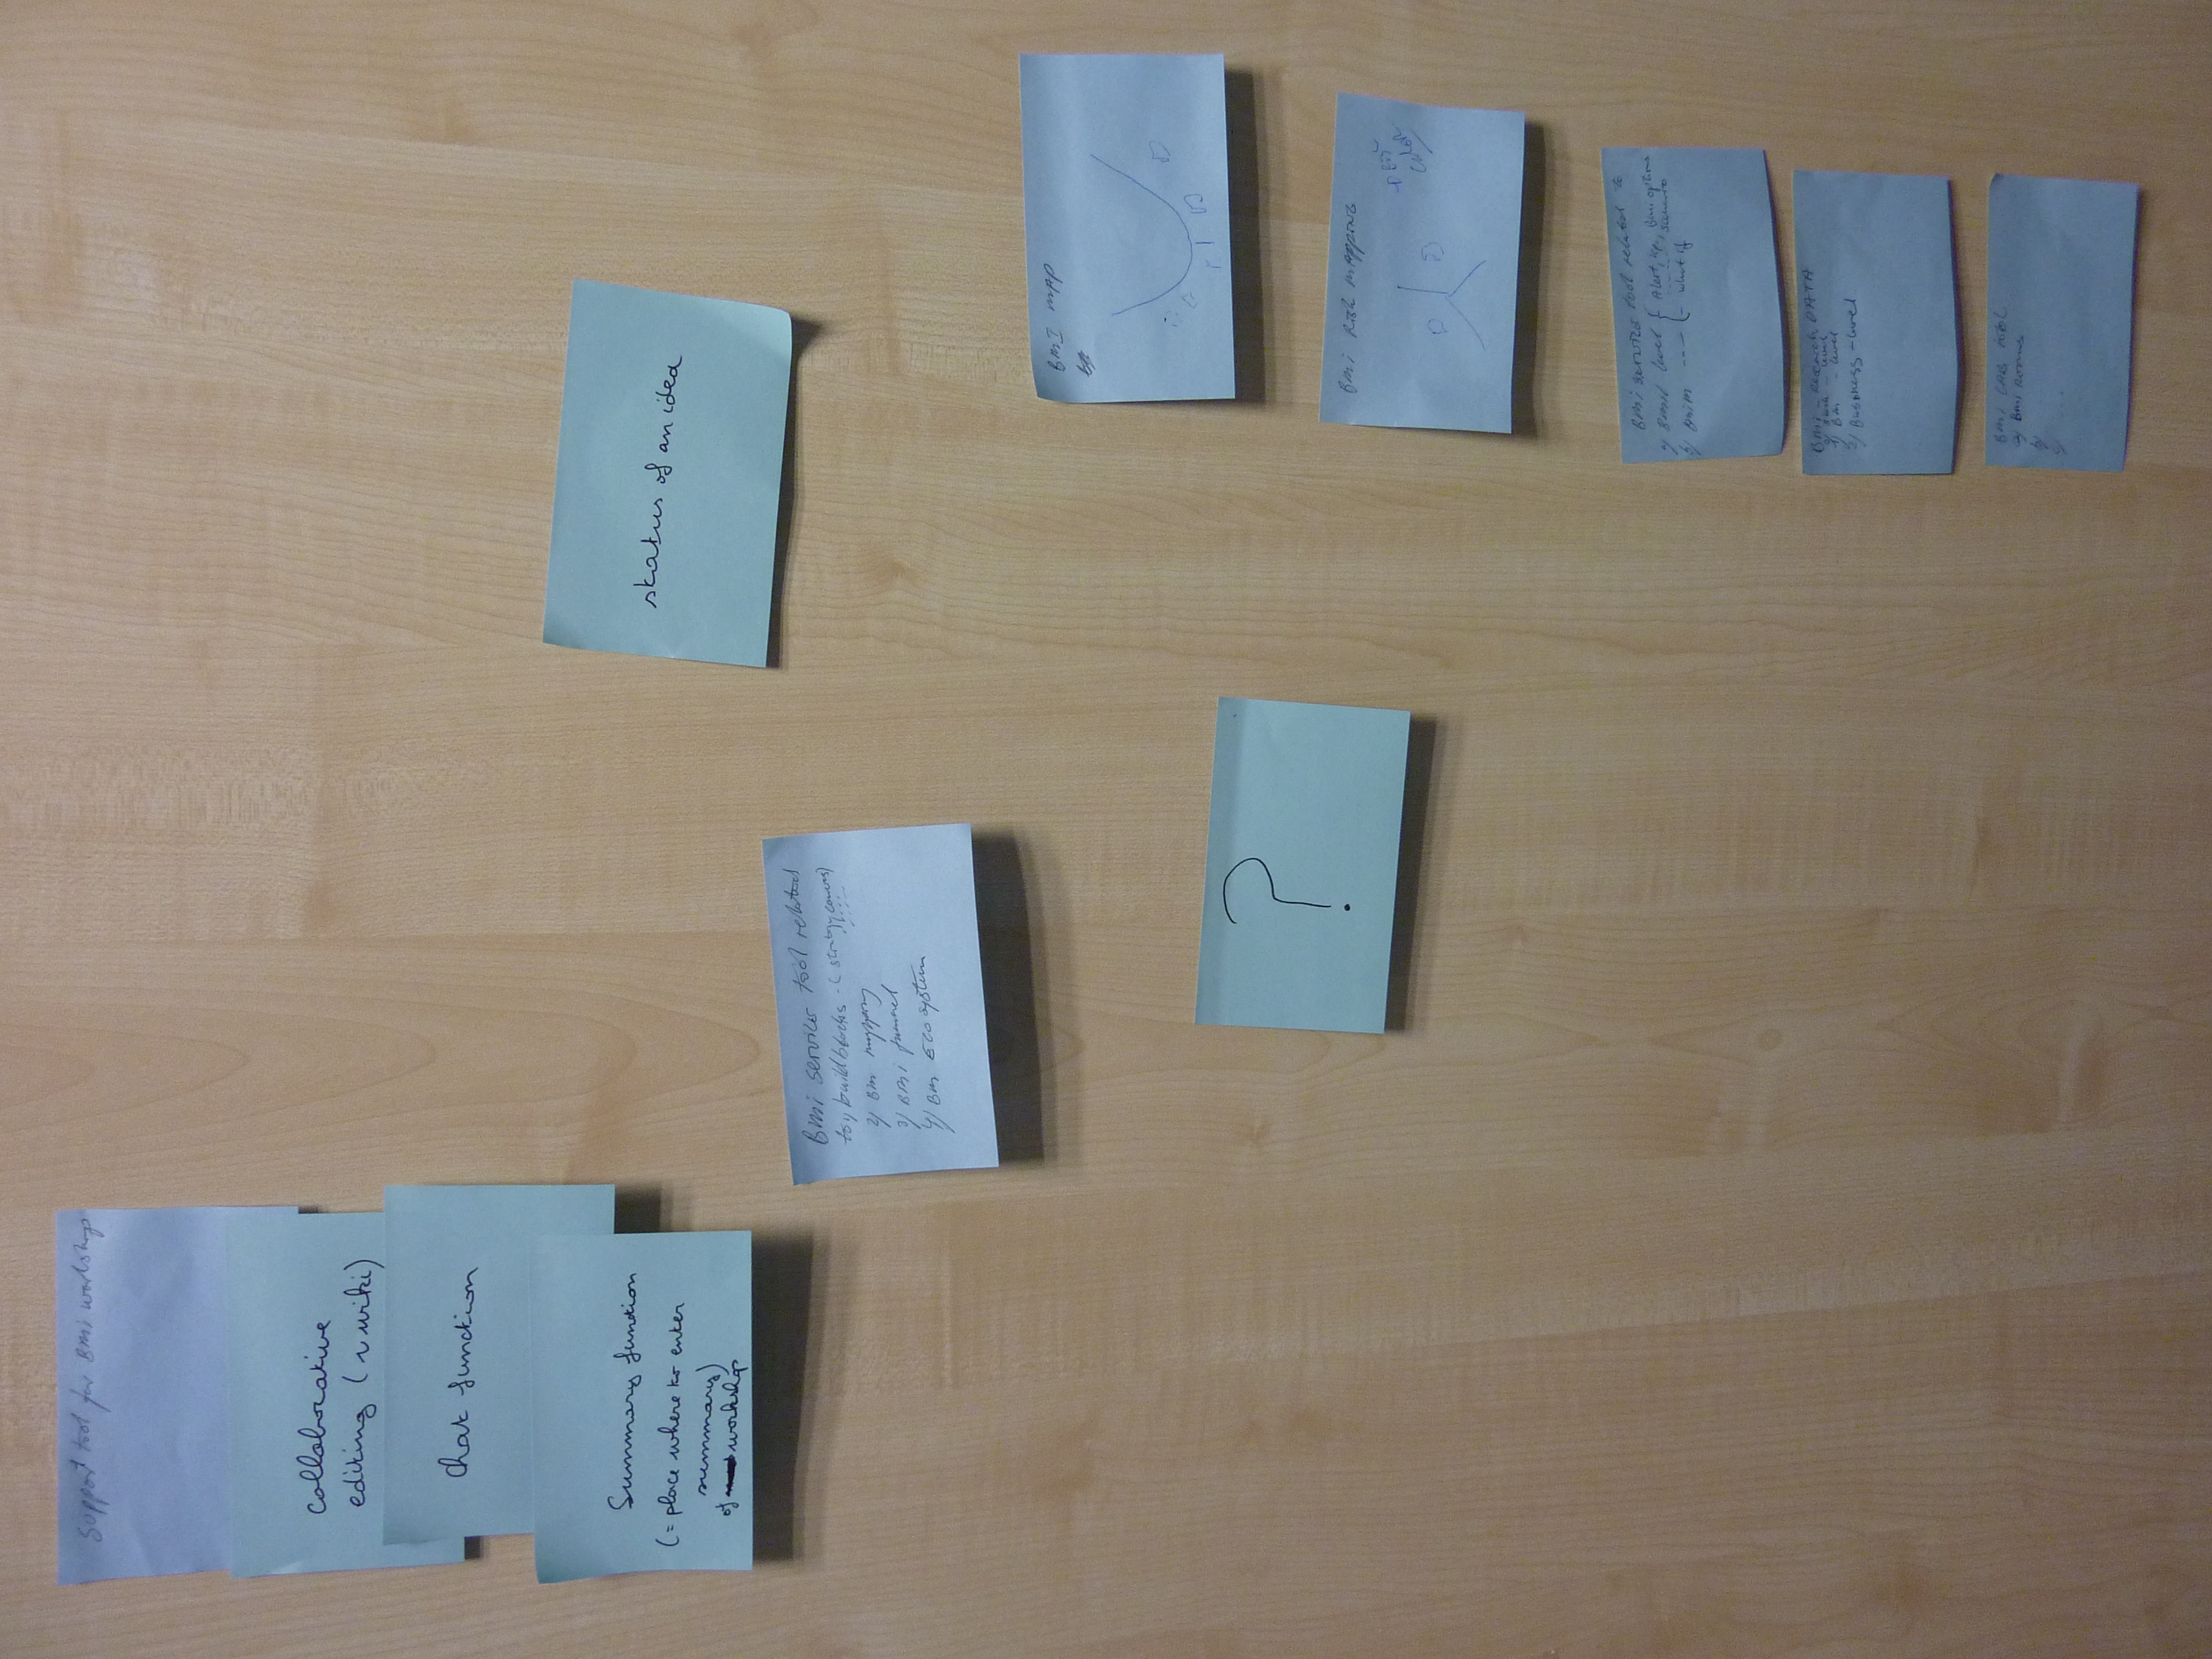 Support tool for BMi workshop
collaborative
editing (~ wiki)
Chat function
Summary function
(= place where to enter
summary)
of workshop
status of an idea
BMi service tool related
to 1) buildblocks - (strategy canvas)
2) BM mapping
3) BMi funnel
4) BM ECOsystem
BMI MAP
?
BMi RISK MAPPING
Color
BMi service tool related to
level { Alert, BMi options
scenario
b) ---- what if
BMi - Research DATA
- level
1) BM - level
2) Business - level
BMi LAB TOOL
a) BMi ROOMS
b)
c) ...